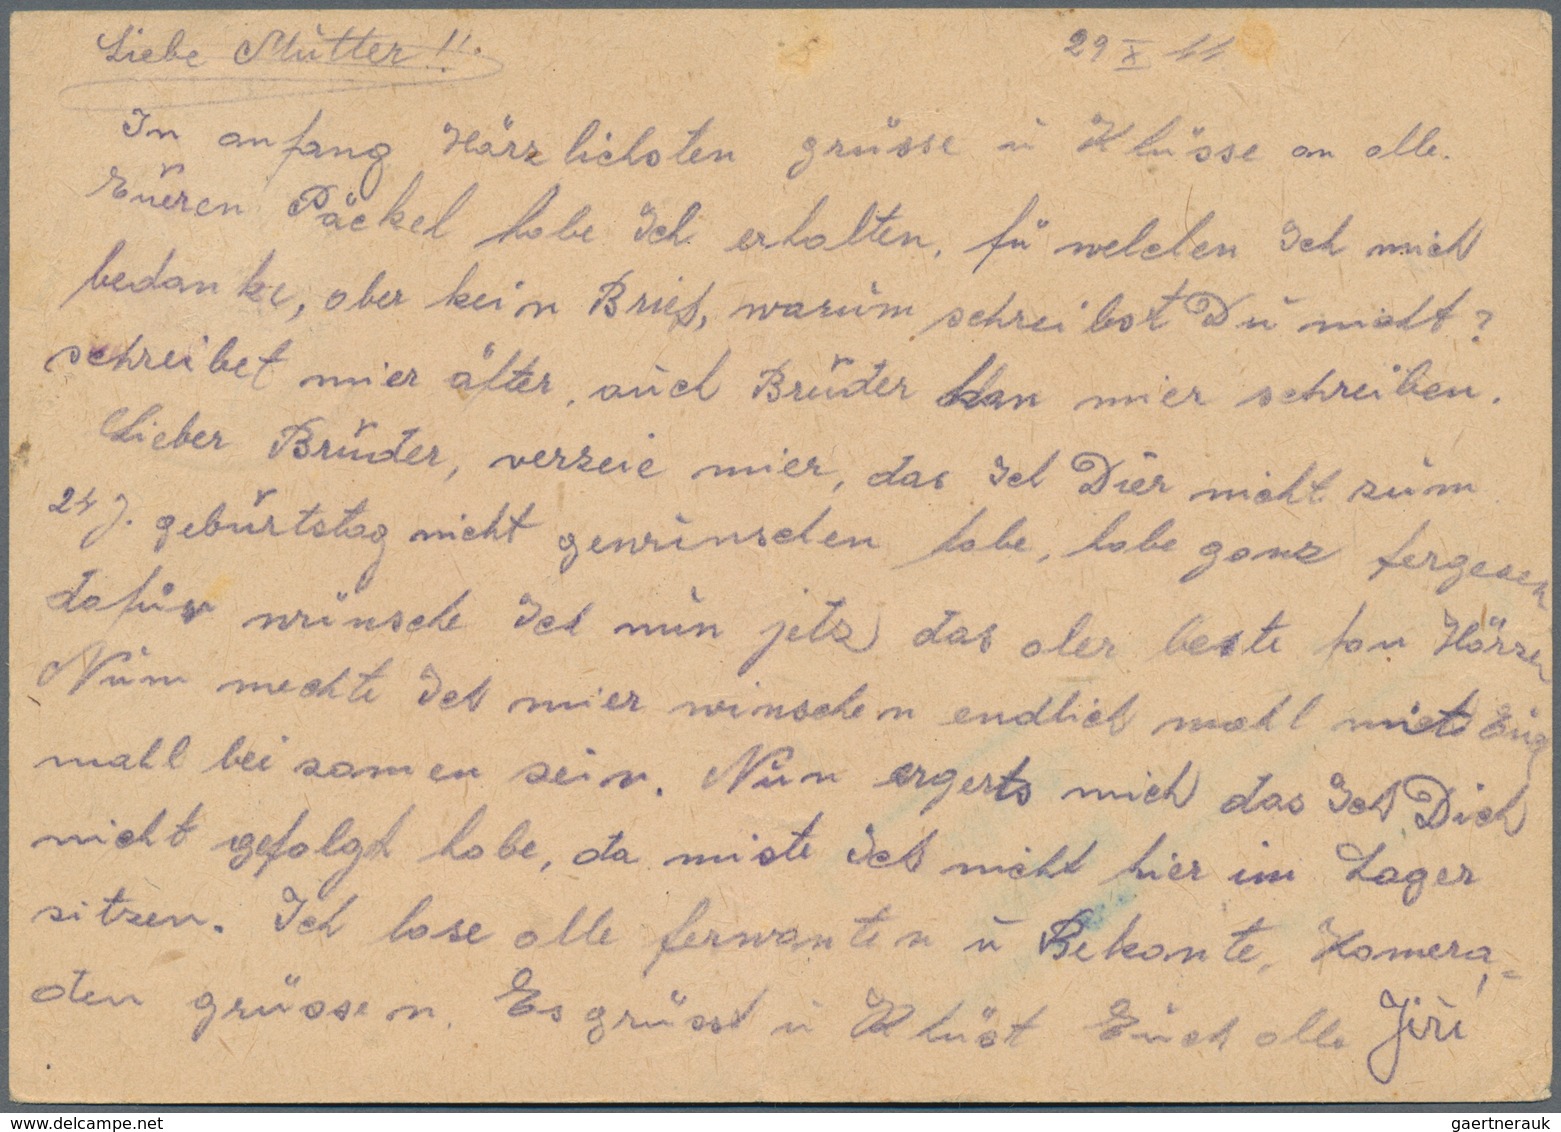 Liebe Mutter!! 29 X 44
In anfang Härzlichsten grüsse ü Küsse an alle.
Eueren Päckel habe Ich erhalten, fü welchen Ich mich
bedanke, aber kein Brief, warum schreibst Du nicht?
schreibet mier älter, auch Bruder kan mier schreiben.
Lieber Bruder, verzeie mier, das Ich Dier nicht zum
24 J. geburtstag nicht gewünschen habe, habe ganz fergesen
dafür wünsche Ich nun jetz das aler beste fon Härzen
Num mechte Ich mier winschen endlich mahl mit Eug
mahl bei zamen sein. Nun ergerts mich das Ich Dich
nicht gefolgt habe, da miste Ich nicht hier im Lager
sitzen. Ich lase alle ferwanten u Bekante, Kamera,=
den grüssen. Es grüsst u Küst Euch alle Jiři
gaertnerauk